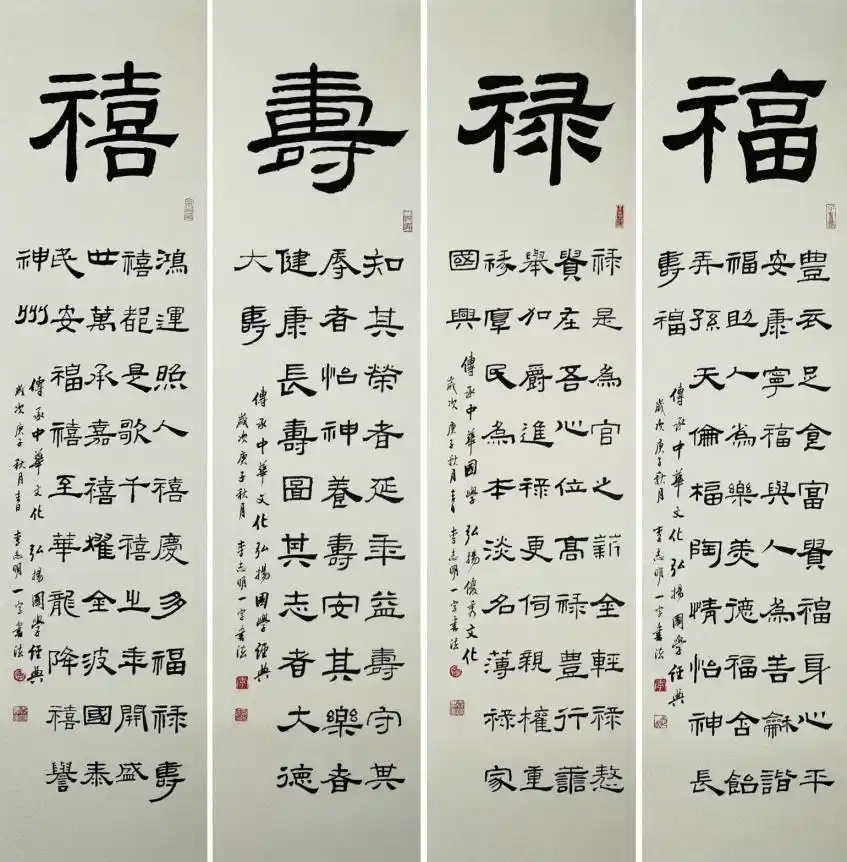 福
豐衣足食富貴福身心平
安康寧福與人為善龢諧
福助人為樂美德福含飴
弄孫天倫福陶情怡神長
壽福
傳承中華文化弘揚國學经典
歲次庚子秋月 李志明一字書法
禄
禄是為官之薪金輕禄
貴在吾心位高禄豊行
舉加爵進禄更伺親權重
禄厚民為本淡名薄禄家
國興
傳承中華國學 弘揚優秀文化
歲次庚子秋月書 李志明一字書法
壽
知其榮者延年益壽守其
辱者怡神養壽安其樂者
健康長壽圖其志者大德
大壽
傳承中華文化弘揚國學經典
歲次庚子秋月 李志明一字書法
禧
鴻運照人禧慶多福祿壽
禧都是歌千禧之年開盛
世萬承嘉禧耀金波國泰
民安福禧至華龍降禧譽
神州
傳承中華文化 弘揚國學經典
歲次庚子秋月書 李志明一字書法